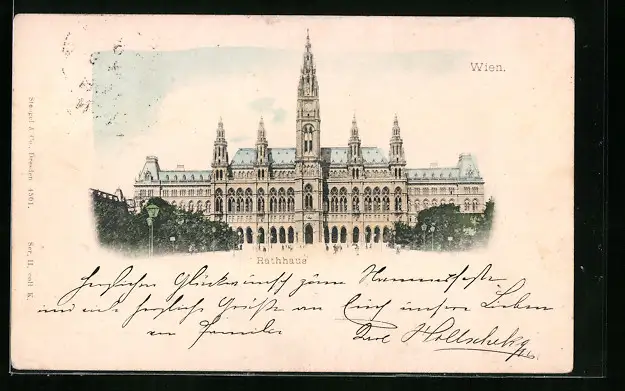 Wien.
Stengel & Co., Dresden 4501.
Ser. II. coll K.
Rathhaus
Herzlichen Glückwunsch zum Namensfeste
und viele herzliche Grüße an Euch unsere Lieben
an Familie